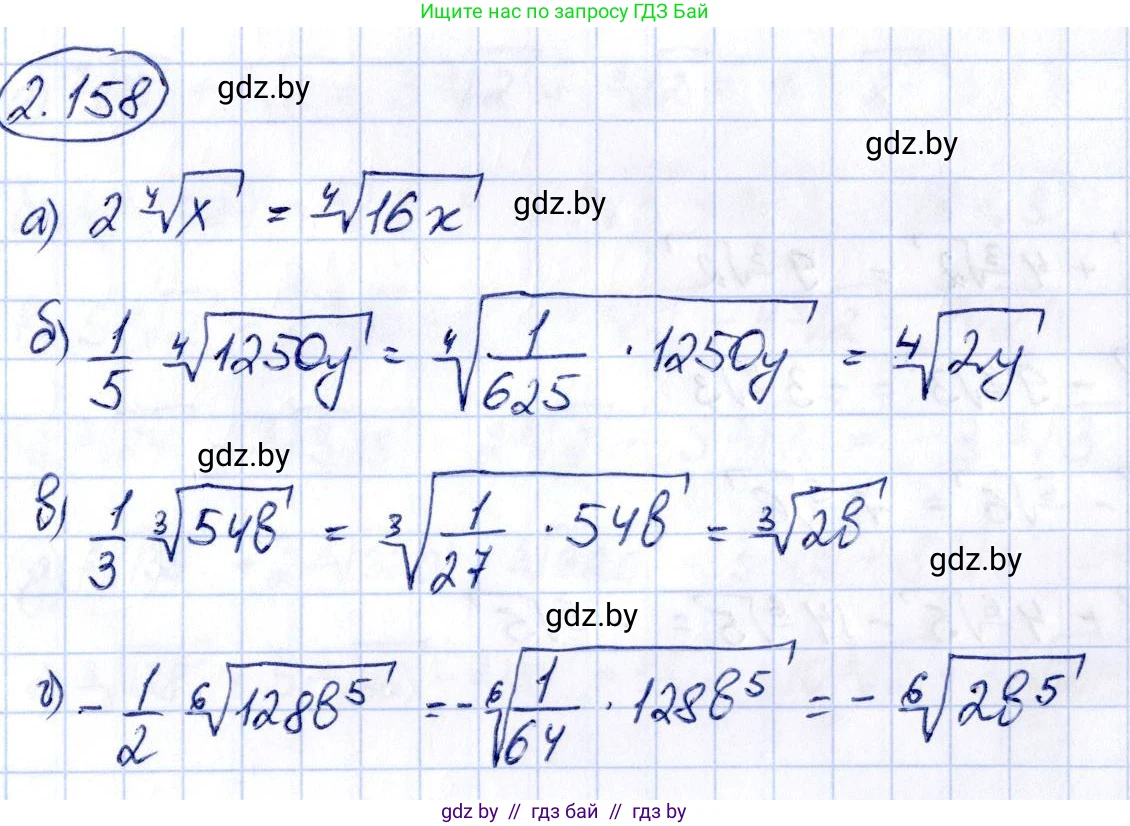 Ищите нас по запросу ГДЗ Бай
2.158
gdz.by
gdz.by
а) 2 ⁴√x = ⁴√16x
gdz.by
б) 1/5 ⁴√1250y = ⁴√1/625 · 1250y = ⁴√2y
gdz.by
в) 1/3 ³√54b = ³√1/27 · 54b = ³√2b
gdz.by
gdz.by
г) - 1/2 ⁶√128b⁵ = - ⁶√1/64 · 128b⁵ = - ⁶√2b⁵
gdz by // гдз бай // gdz by